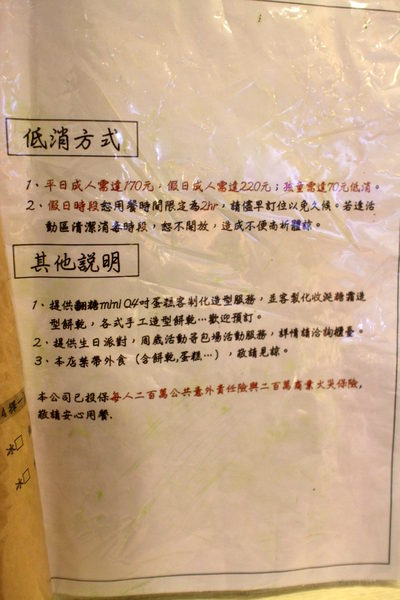 低消方式
1、平日成人需達170元，假日成人需達220元；孩童需達70元低消。
2、假日時段恕用餐時間限定為2hr，請儘早訂位以免久候。若逢活
動區清潔消毒時段，恕不開放，造成不便尚祈體諒。
其他說明
1、提供翻糖mini Q4吋蛋糕客制化造型服務，並客製化收涎糖霜造
型餅乾，各式手工造型餅乾…歡迎預訂。
2、提供生日派對，周歲活動等包場活動服務，詳情請洽詢櫃臺。
3、本店禁帶外食（含餅乾,蛋糕…），敬請見諒。
本公司已投保每人二百萬公共意外責任險與二百萬商業火災保險，
敬請安心用餐.
4擇一
水
水